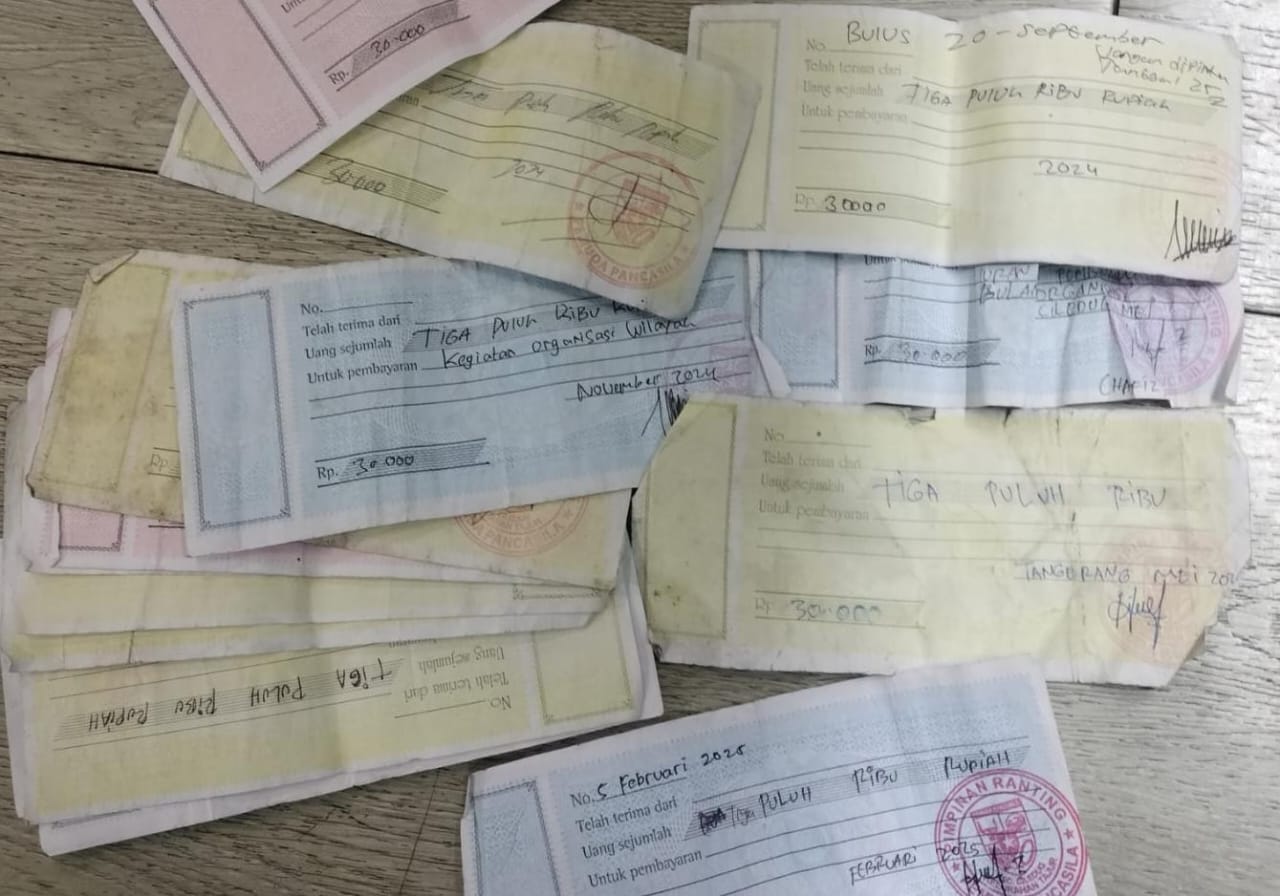 Rp. 30.000
Puluh Ribu Rupiah
30.000
2024
PEMUDA PANCASILA
No. BULUS 20 - September
Jangan dipintu
Telah terima dari
Uang sejumlah TIGA PULUH RIBU RUPIAH
Untuk pembayaran
2024
Rp. 30000
No.
Telah terima dari
Uang sejumlah TIGA PULUH RIBU
Untuk pembayaran Kegiatan Organisasi Wilayah
November 2024
Rp. 30.000
IURAN
BULAN
CILEDUG MEI
Rp. 30.000
CHAFIZ
RANTING
Rp.
PANCASILA
No.
Telah terima dari
Uang sejumlah TIGA PULUH RIBU
Untuk pembayaran
TANGERANG MEI
Rp. 30.000
No.
Telah terima dari
Uang sejumlah TIGA PULUH RIBU RUPIAH
No. 5 Februari 2025
Telah terima dari
Uang sejumlah Tiga PULUH RIBU RUPIAH
Untuk pembayaran
FEBRUARI 2025
PIMPINAN RANTING
PANCASILA